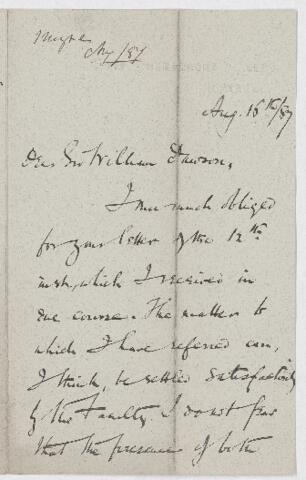 Aug/87
Aug. 16th/87
Dear Sir William Dawson,
I am much obliged
for your letter of the 12th
inst, which I received in
due course. The matter to
which I have referred can,
I think, be settled satisfactorily
by the Faculty. I do not fear
that the presence of both